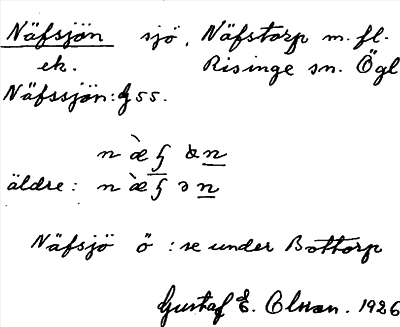 Näfsjön sjö, Näfstorp m. fl.
ek. Risinge sn. Ögl
Näfssjön: G 55.
n æ̀ ʄ ə n
äldre: n æ̀ ʄ ə n
Näfsjö ö : se under Bottorp
Gustaf E. Olsson. 1926